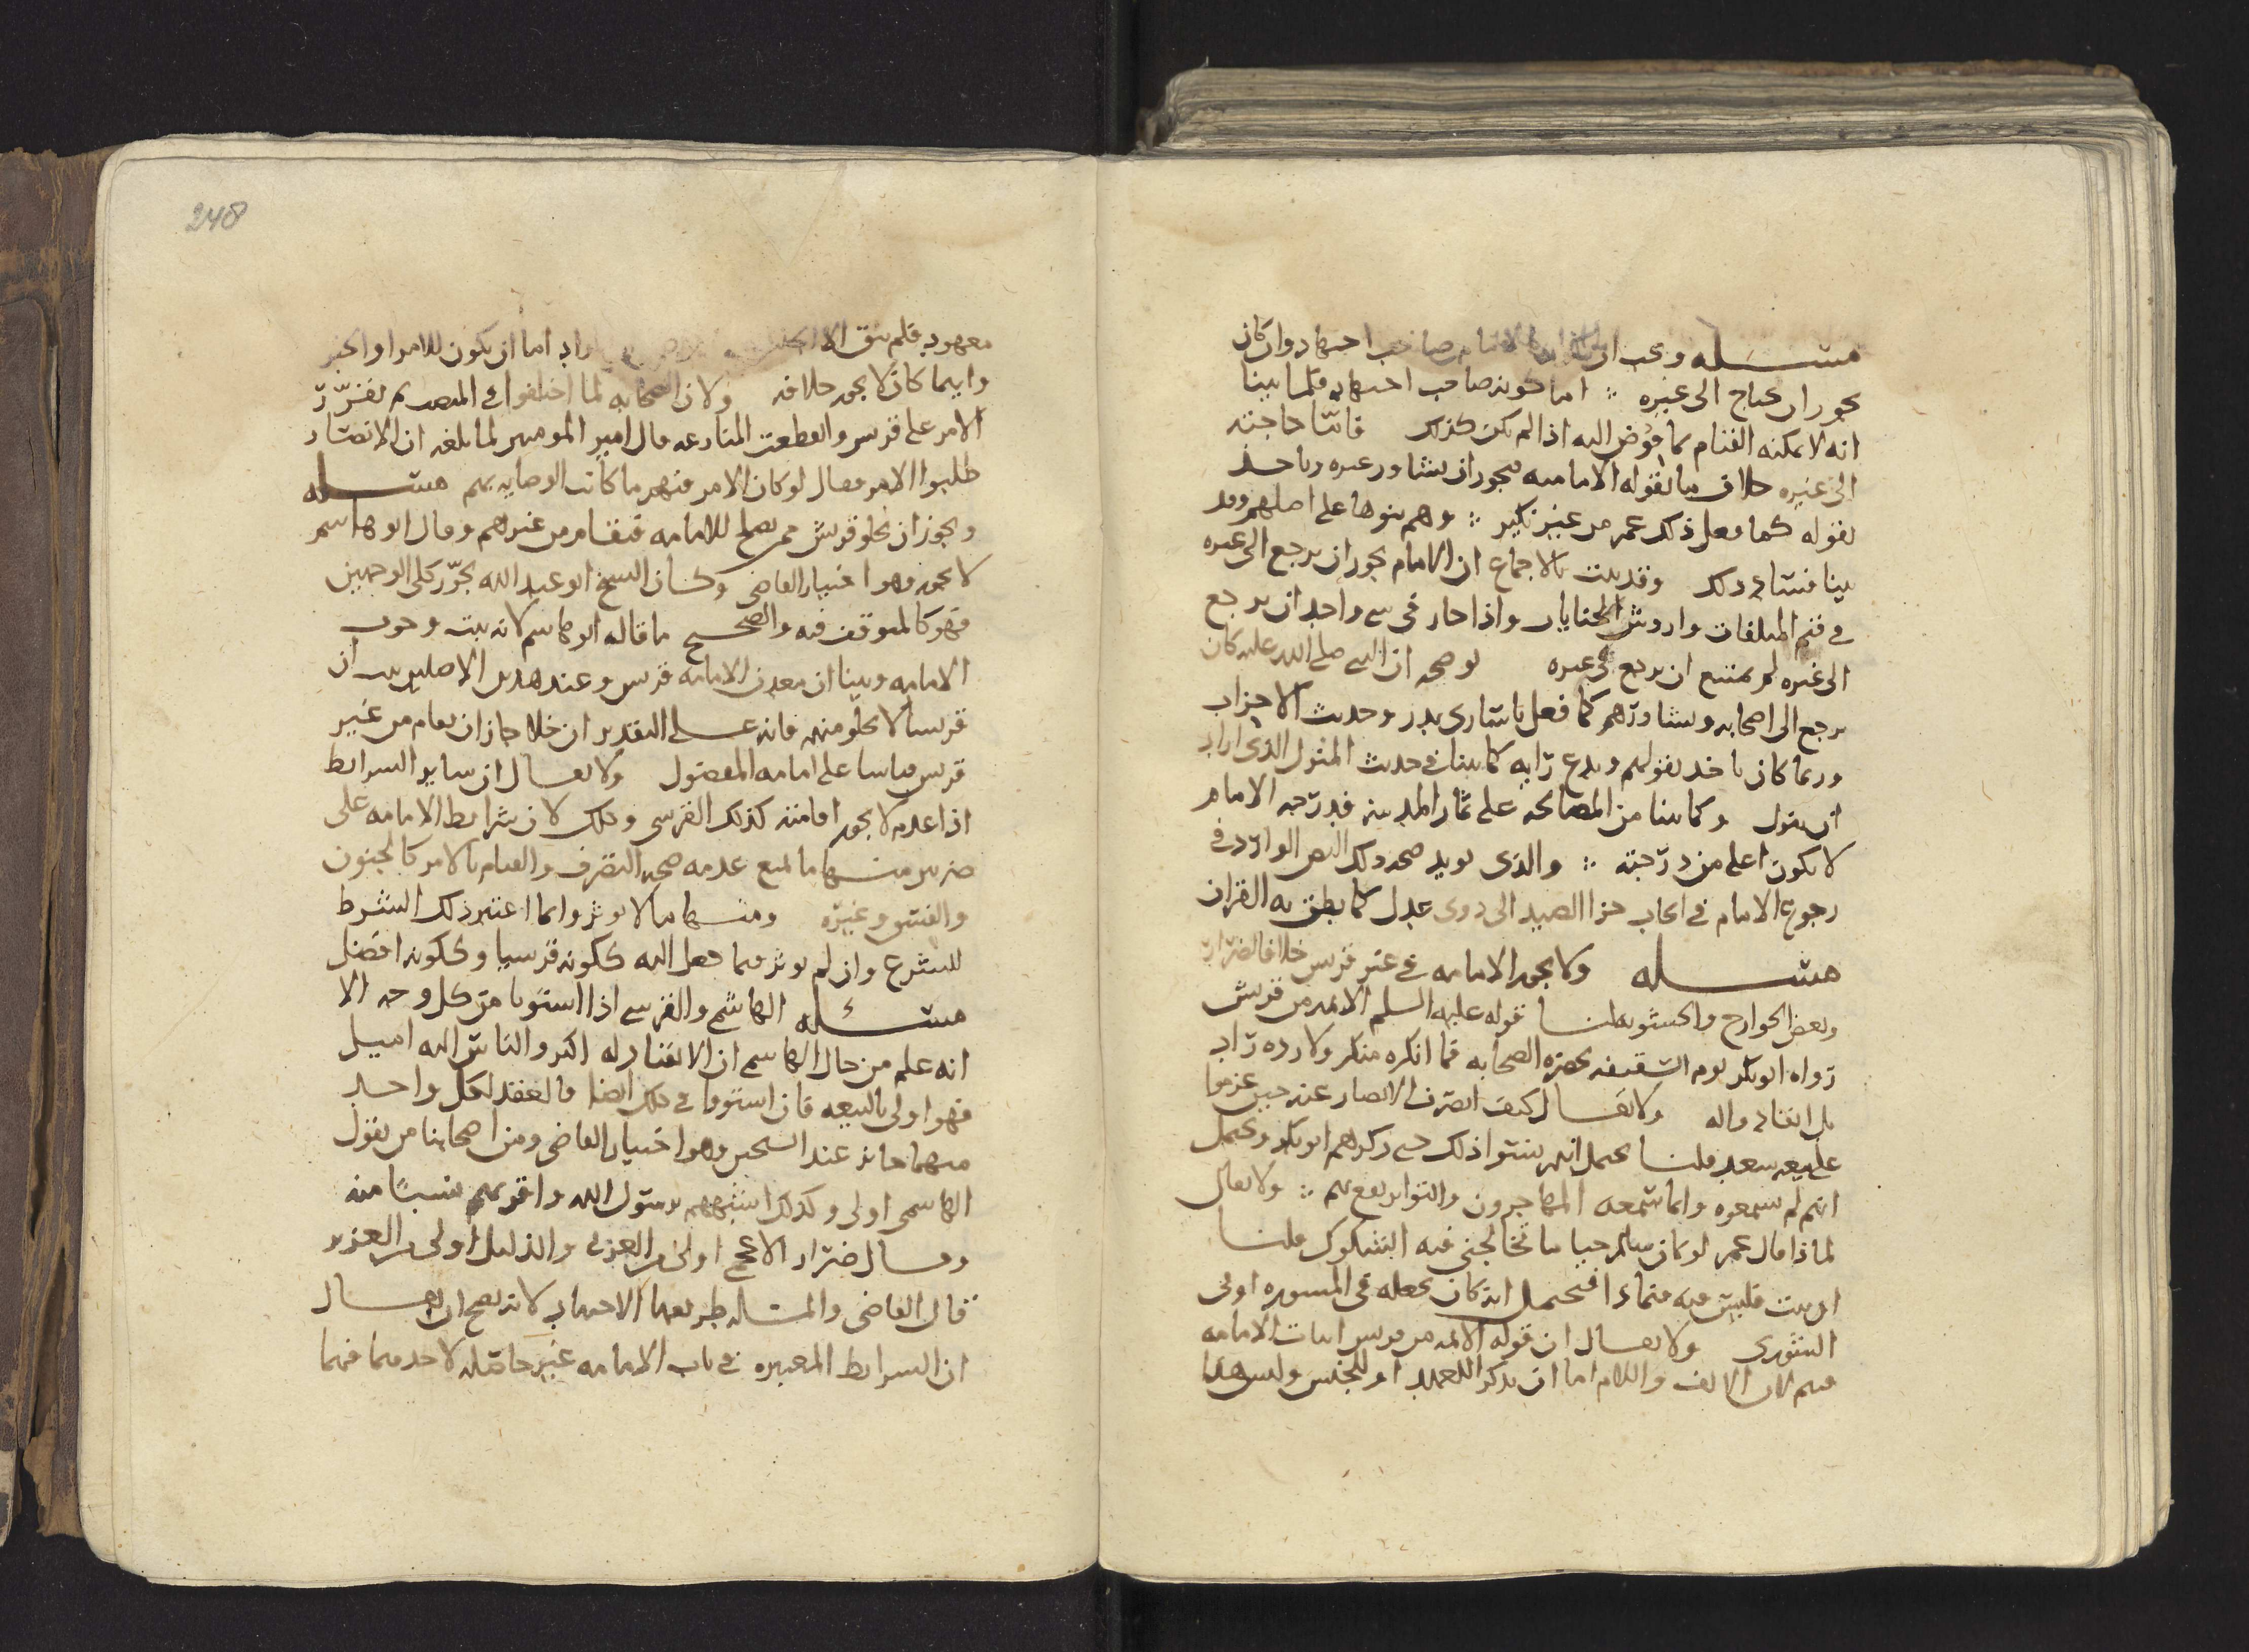 مسـله ويجب ان يكون الامام صاحب اجتهاد وان كان
يجوز ان يحتاج الى غيره ∴ اما كونه صاحب اجتهاد فلما بينا
انه لا يمكنه القيام بما فوض اليه اذا لم يكن كذلك فاما حاجته
الى غيره خلاف ما تقوله الاماميه فيجوز ان يشاور غيره وياخذ
بقوله كما فعل ذلك عمر من غير نكير ∴ وهم بنوها على اصلهم وقد
بينا فساد ذلك وقد ثبت بالاجماع ان الامام يجوز ان يرجع الى غيره
في قيم المتلفات واروش الجنايات واذا جاز في شي واحد ان يرجع
الى غيره لم يمتنع ان يرجع في غيره يوضحه ان النبي صلى الله عليه كان
يرجع الى اصحابه ويشاورهم كما فعل باسارى بدر وحديث الاحزاب
وربما كان ياخذ بقولهم ويدع رايه كما بينا في حديث المنزل الذي اراد
ان ينزل وكما بينا من المصالحه على ثمار المدينه فدرجه الامام
لا يكون اعلى من درجته ∴ والذي يويد صحه ذلك النص الوارد في
رجوع الامام في ايجاب جزا الصيد الى ذوى عدل كما نطق به القران
مسـله ولا يجوز الامامه في غير قريش خلافا لضرار
وبعض الخوارج والحشويه لنا قوله عليه السلم الائمه من قريش
رواه ابو بكر يوم السقيفه بحضره الصحابه فما انكره منكر ولا رده راد
بل انقادوا له ولا يقال كيف انصرف الانصار عنه حين عزموا
على بيعه سعد قلنا يحتمل انهم نسوا ذلك حتى ذكرهم ابو بكر ويحتمل
انهم لم يسمعوه وانما سمعه المهاجرون والتواتر يقع بهم ∴ ولا يقال
لماذا قال عمر لو كان سالم حيا ما تخالجني فيه الشكوك قلنا
ان ثبت فليس فيه فيحتمل انه كان يجعله في المشوره او في
الشورى ولا يقال ان قوله الائمه من قريش اثبات الامامه
فيهم لان الالف واللام اما ان يذكر للعهد او للجنس وليس هاهنا
معهود فلم يبق الا اما ان يكون للامر او الخبر
وايهما كان لا يجوز خلافه ولان الصحابه لما اختلفوا في المنصب ثم تقرر
الامر على قريش وانقطعت المنازعه قال امير المومنين لما بلغه ان الانصار
طلبوا الامر فقال لو كان الامر فيهم ما كانت الوصايه بهم مسـله
ويجوز ان تخلو قريش ممن يصلح للامامه فيقام من غيرهم وقال ابو هاشم
لا يجوز وهو اختيار القاضي وكان الشيخ ابو عبد الله يجوز كلى الوجهين
فهو كالمتوقف فيه والصحيح ما قاله ابو هاشم لانه يثبت وجوب
الامامه وبينا ان معدن الامامه قريش وعند هذين الاصلين يثبت ان
قريشا لا يخلو منه فانه على التقدير ان خلا جاز ان يقام من غير
قريش قياسا على امامه المفضول ولا يقال ان ساير الشرايط
اذا عدم لا يجوز اقامته كذلك القرشي وذلك لان شرايط الامامه على
ضربين منها ما يمنع عدمه صحه التصرف والقيام بالامر كالجنون
والفسق وغيره ومنها ما لا يوثر وانما اعتبر ذلك الشرط
للشرع وان لم يوثر فيما جعل اليه ككونه قرشيا وككونه افضل
مسـله الهاشمي والقرشي اذا استويا من كل وجه الا
انه علم من حال الهاشمي ان الانقياد له اكثر والناس اليه اميل
فهو اولى بالبيعه فان استووا في ذلك ايضا فالعقد لكل واحد
منهما جائز عند الشيخين وهو اختيار القاضي ومن اصحابنا من يقول
الهاشمي اولى وكذلك اشبههم برسول الله واقربهم نسبا منه
وقال ضرار الاعجمي اولى من العربي والذليل اولى من العزيز
قال القاضي والمساله طريقها الاجتهاد لانه يصح ان يقال
ان الشرايط المعتبره في باب الامامه غير حاصله لاحدهما فيهما
248